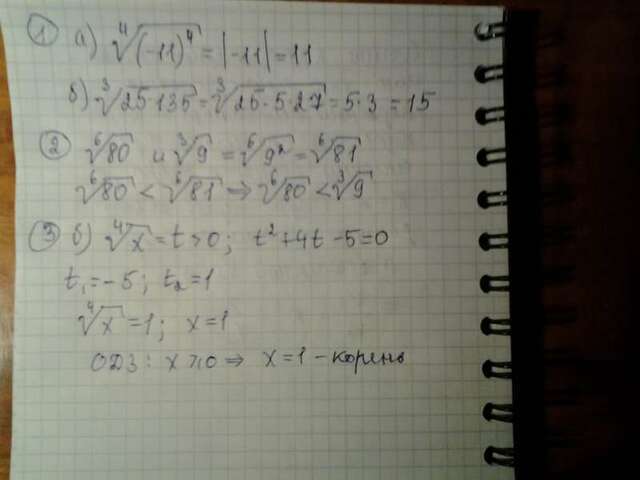 ① а) ∜(-11)⁴ = |-11| = 11
б) ∛25·135 = ∛25·5·27 = 5·3 = 15
② ⁶√80 и ∛9 = ⁶√9² = ⁶√81
⁶√80 < ⁶√81 ⇒ ⁶√80 < ∛9
③ б) ∜x = t > 0; t² + 4t - 5 = 0
t₁ = -5; t₂ = 1
∜x = 1; x = 1
ОДЗ: x ≥ 0 ⇒ x = 1 - корень